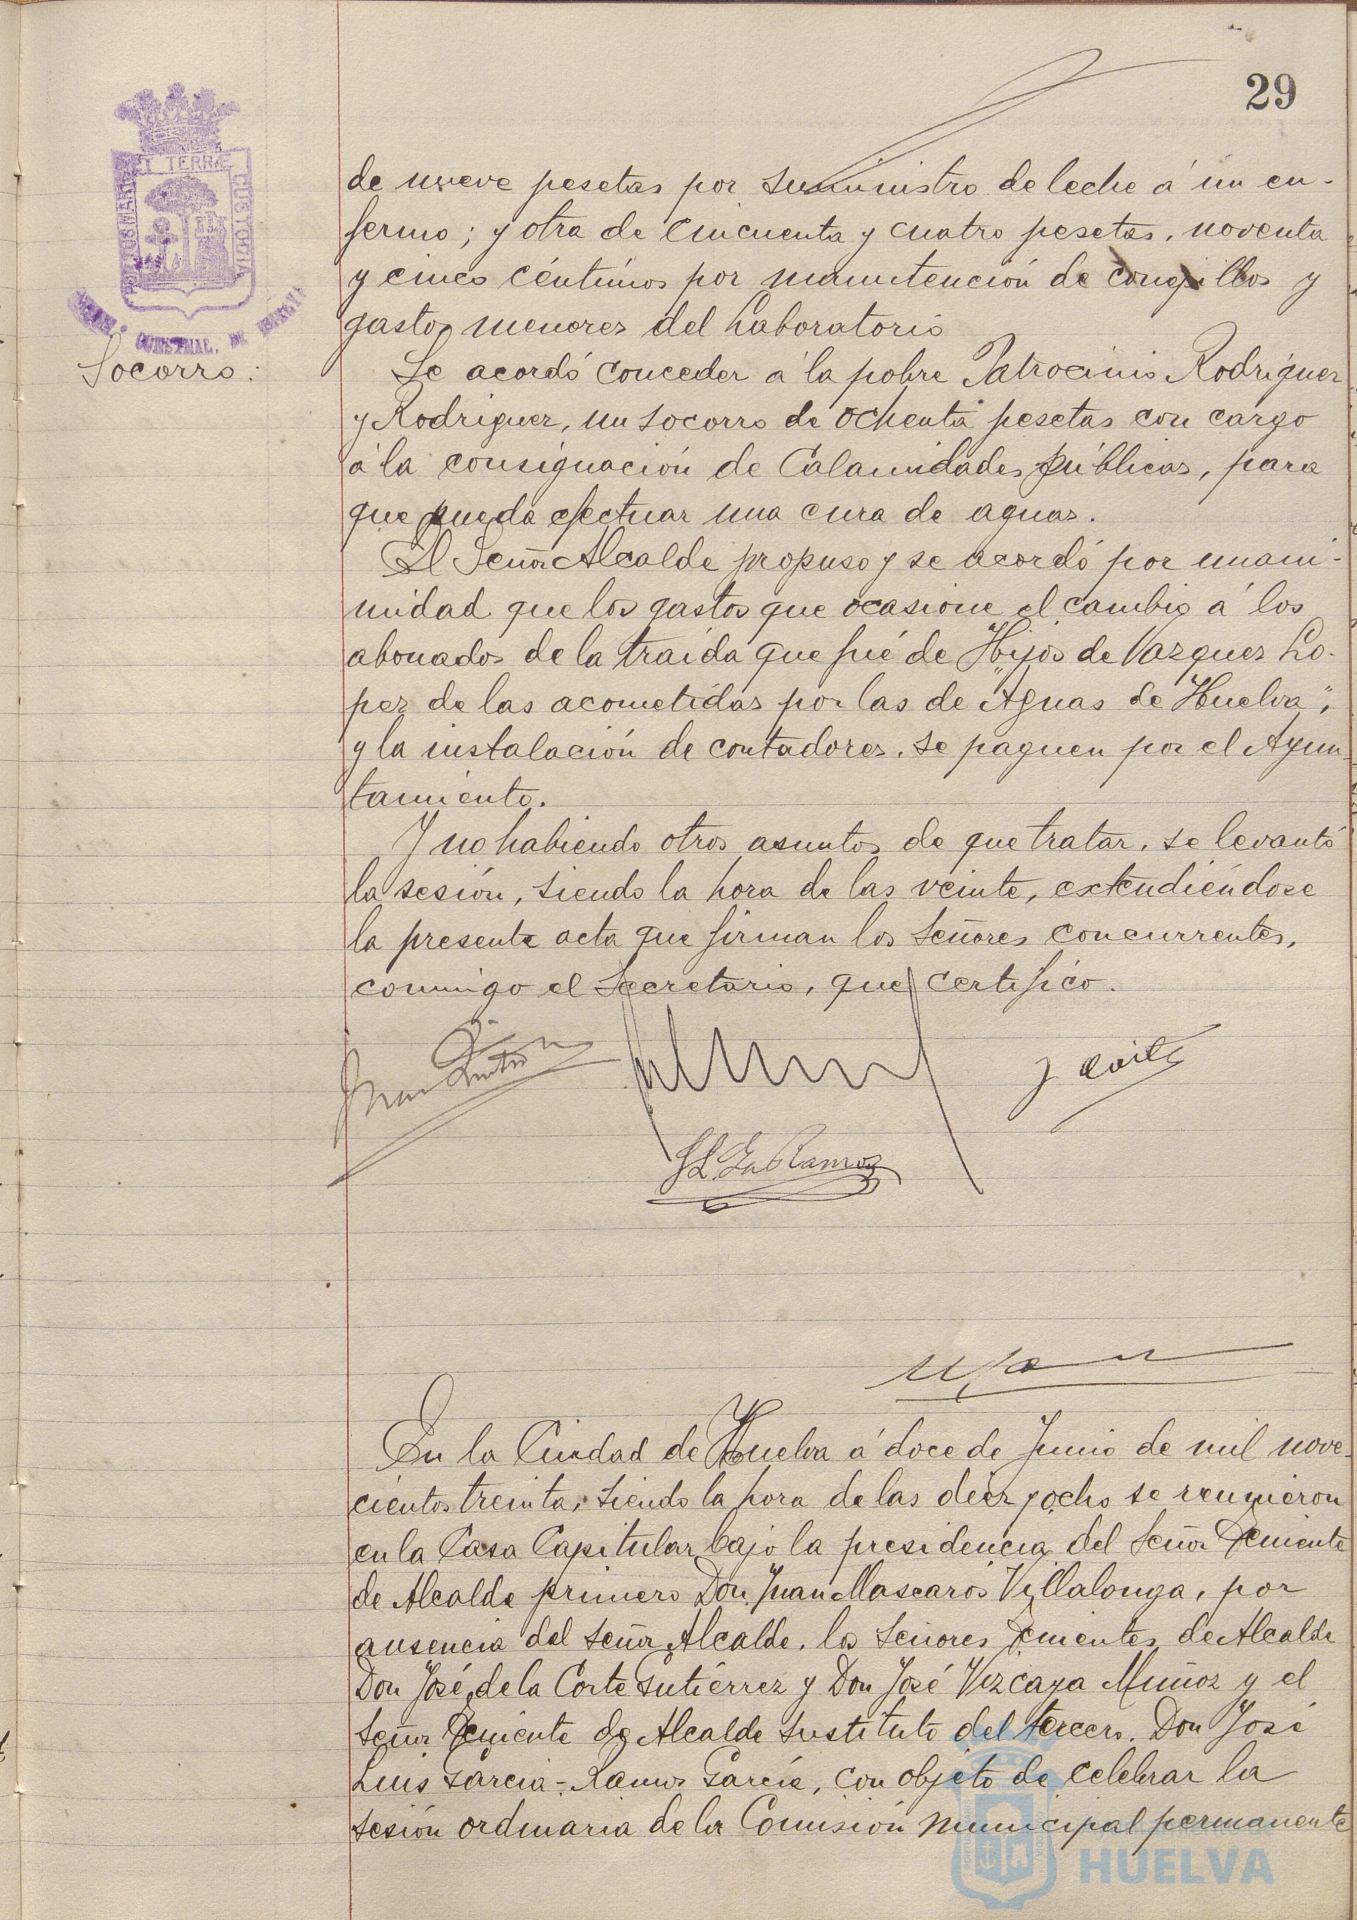 29
PORTUS MARIS ET TERRÆ CUSTODIA
de nueve pesetas por suministro de leche á un en-
fermo; y otra de cincuenta y cuatro pesetas, noventa
y cinco céntimos por manutención de conejillos y
gastos menores del Laboratorio
Socorro:
Se acordó conceder á la pobre Patrocinio Rodriguez
y Rodriguez, un socorro de ochenta pesetas con cargo
á la consignación de Calamidades públicas, para
que pueda efectuar una cura de aguas.
El Señor Alcalde propuso y se acordó por unani-
midad que los gastos que ocasione el cambio á los
abonados de la traída que fué de "Hijos de Vazquez Lo-
pez de las acometidas por las de "Aguas de Huelva",
y la instalación de contadores, se paguen por el Ayun
tamiento.
Y no habiendo otros asuntos de que tratar, se levantó
la sesión, siendo la hora de las veinte, extendiéndose
la presente acta que firman los Señores concurrentes,
conmigo el Secretario, que certifico.
J L. Ga Ramos
En la Ciudad de Huelva á doce de Junio de mil nove-
cientos treinta, siendo la hora de las diez y ocho se reunieron
en la Casa Capitular bajo la presidencia del Señor Teniente
de Alcalde primero Don Juan Mascarós Villalonga, por
ausencia del Señor Alcalde, los Señores Tenientes de Alcalde
Don José de la Corte Gutiérrez y Don José Vizcaya Muñoz y el
Señor Teniente de Alcalde sustituto del tercero, Don José
Luis García-Ramos García, con objeto de celebrar la
sesión ordinaria de la Comisión municipal permanente
HUELVA